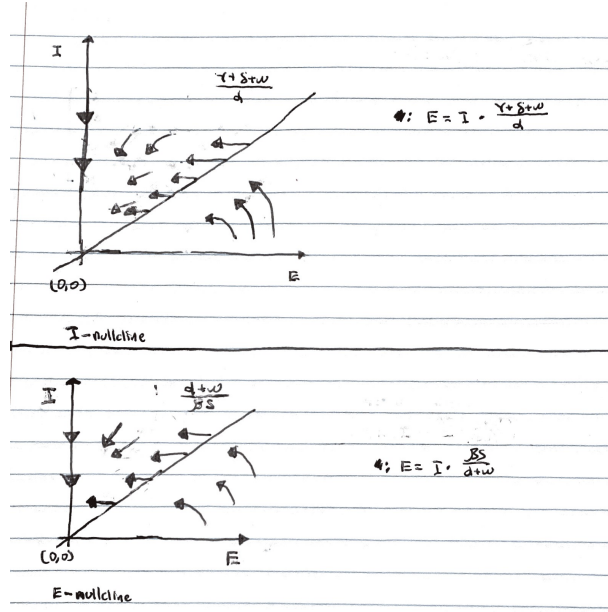 I
γ + δ + ω
α
*: E = I · γ + δ + ω
α
E
(0,0)
I-nullcline
I
: α + ω
βS
*: E = I · βS
α + ω
(0,0)
E
E-nullcline